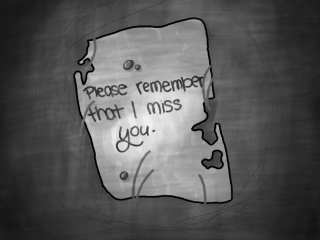 Please remember
that I miss
you.